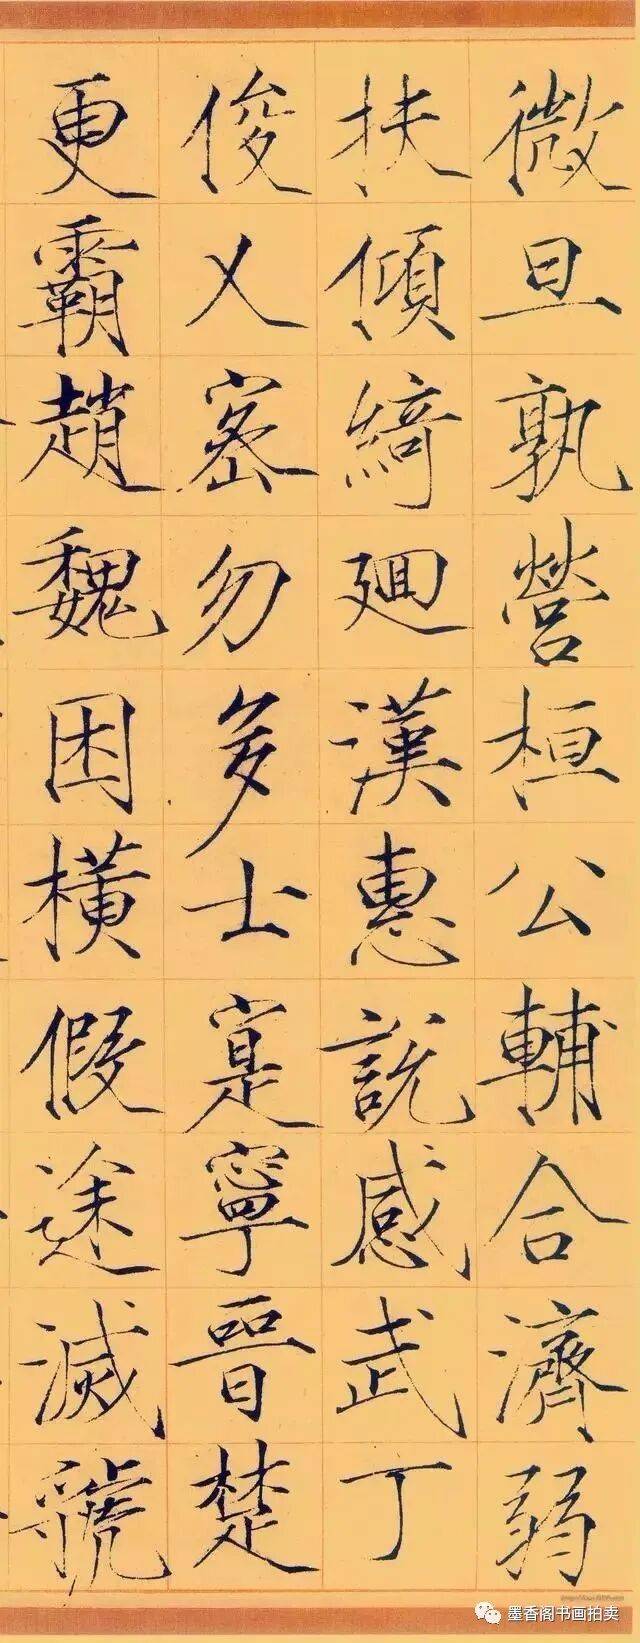 微旦孰營桓公輔合濟弱
扶傾綺迴漢惠說感武丁
俊乂密勿多士寔寧晉楚
更霸趙魏困橫假途滅虢
墨香阁书画拍卖